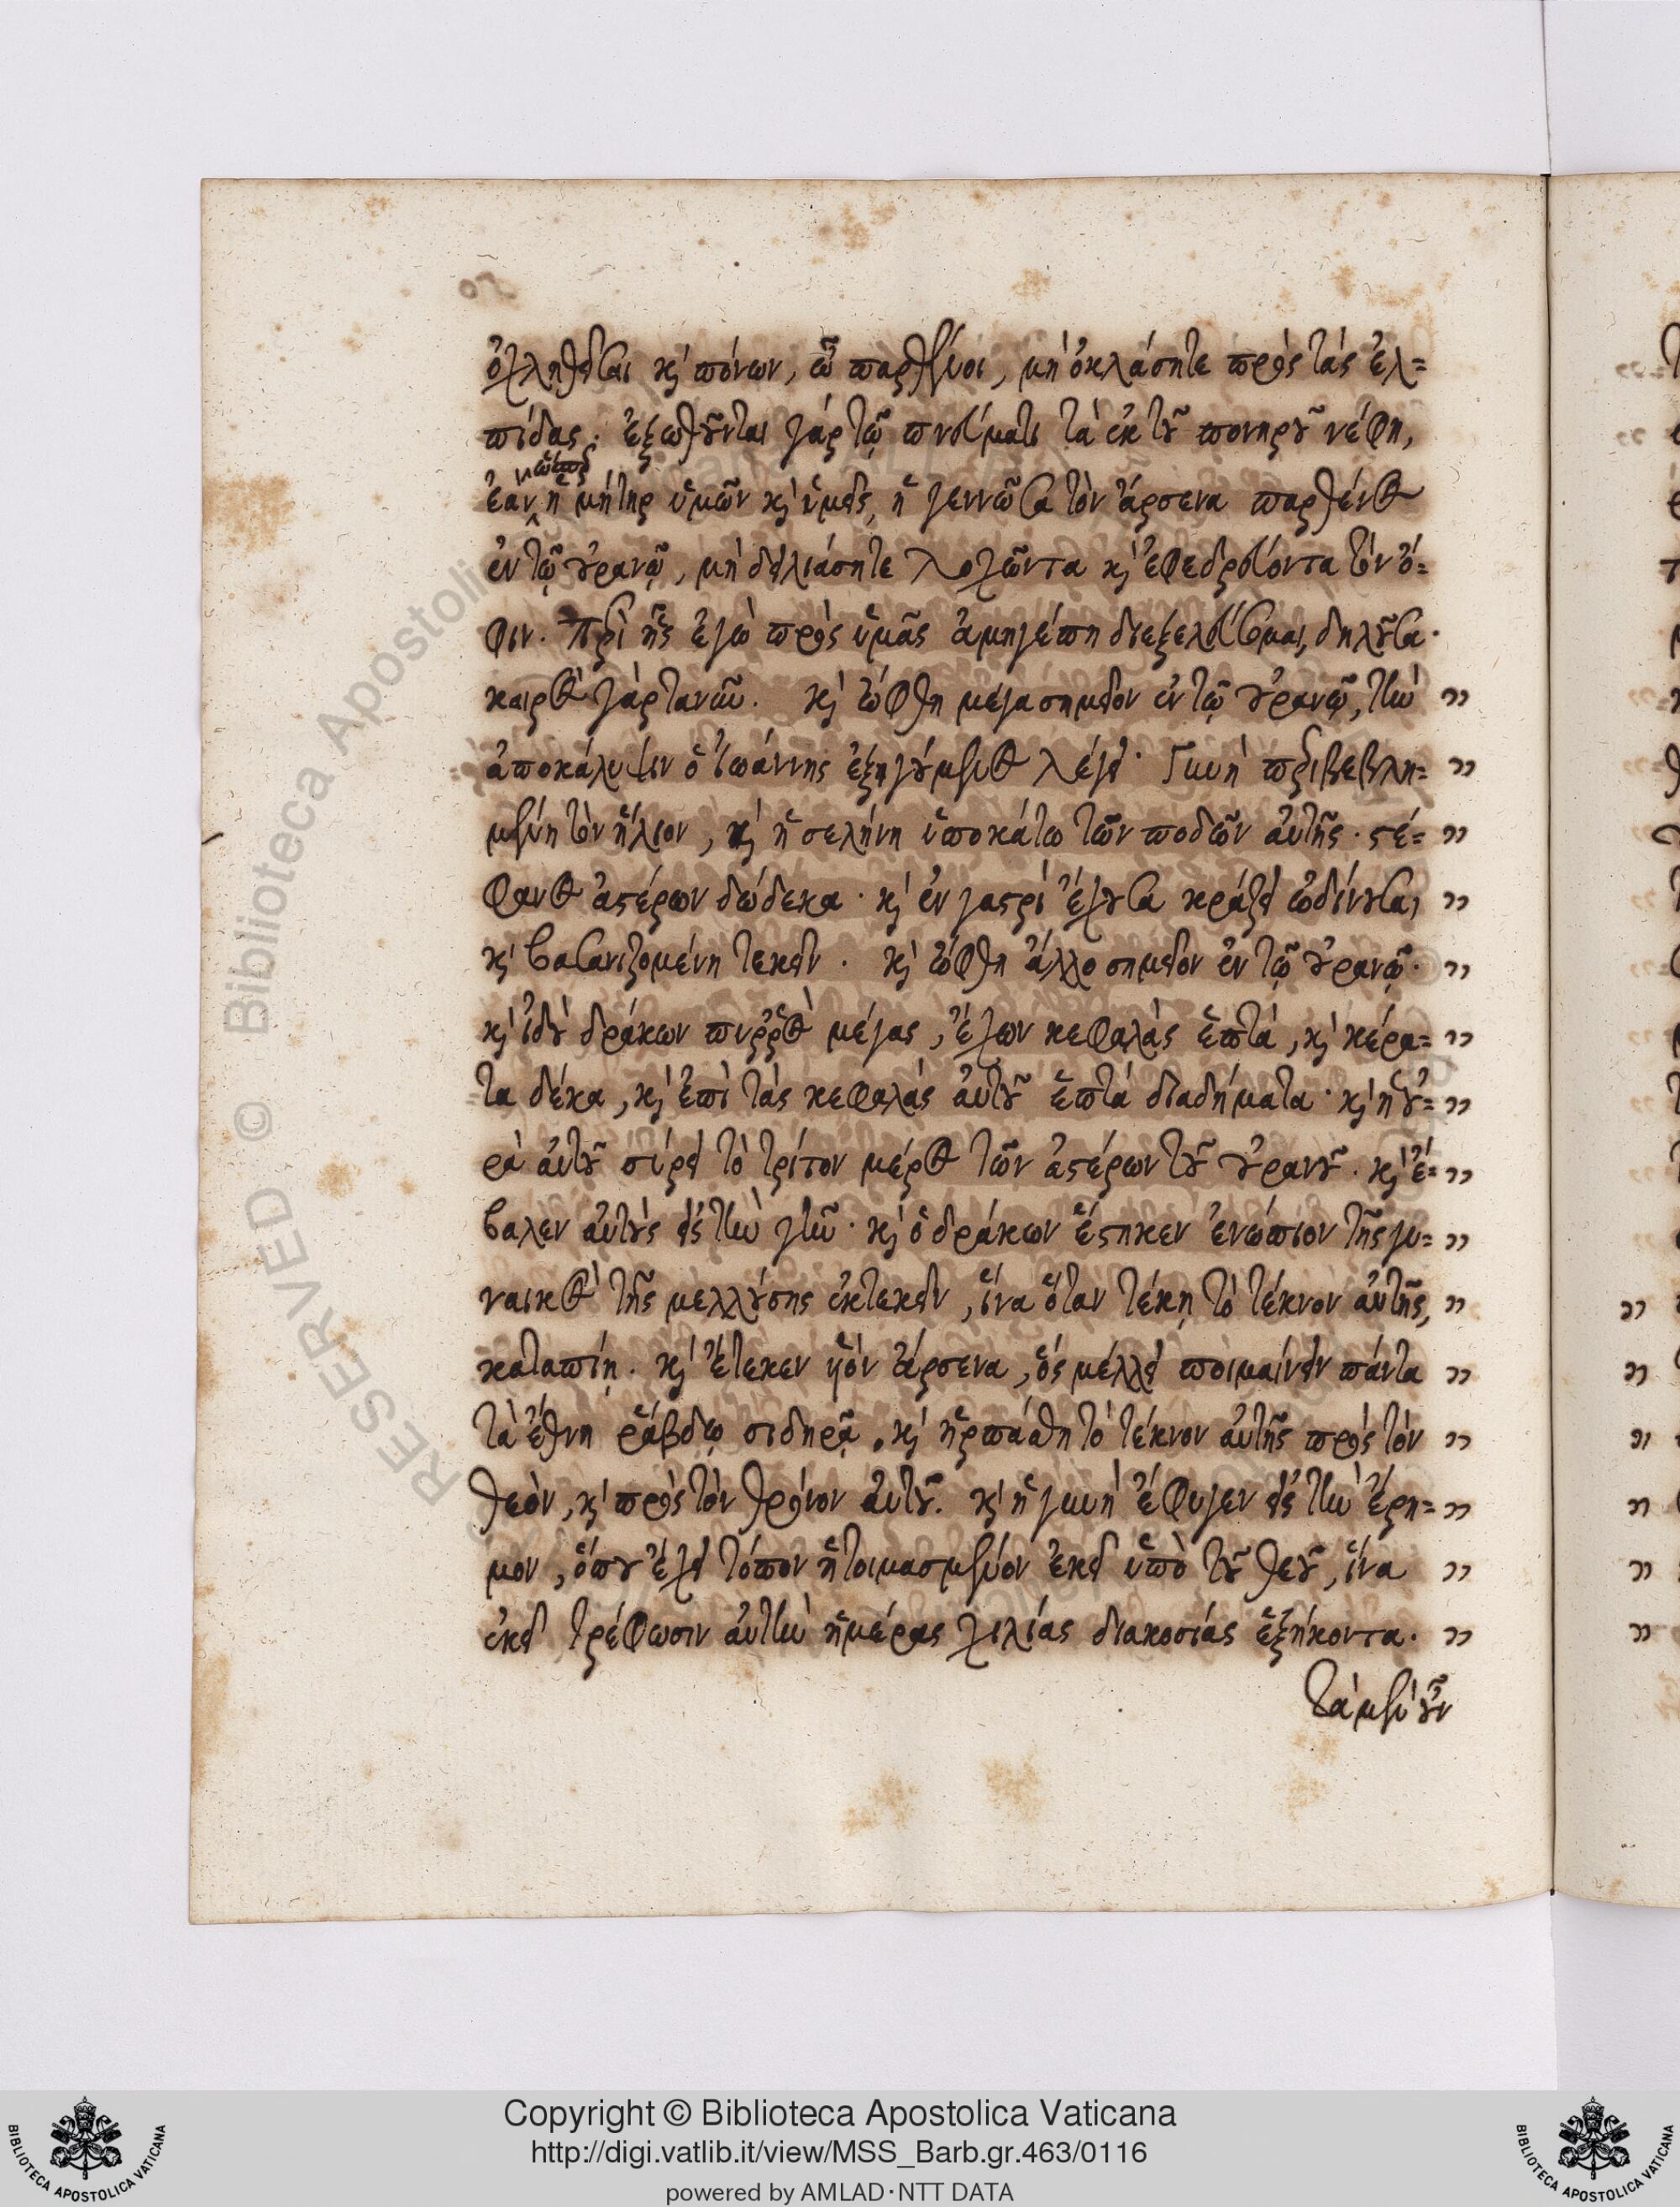 ὀχληθεῖσαι καὶ πόνων, ὦ παρθένοι, μὴ ὀκλάσητε πρὸς τὰς ἐλ=
πίδας· ἐξωθοῦνται γὰρ τῷ πνεύματι τὰ ἐκ τοῦ πονηροῦ νέφη,
ἐὰν ἡ μήτηρ ὑμῶν καὶ ὑμεῖς, ἡ γεννῶσα τὸν ἄρσενα παρθένος
ἐν τῷ οὐρανῷ, μὴ δειλιάσητε λοχῶντα καὶ ἐφεδρεύοντα τὸν ὄ=
φιν. Περὶ ἧς ἐγὼ πρὸς ὑμᾶς διεξελεύσομαι, δηλοῦσα·
καιρὸς γὰρ τανῦν. καὶ ὤφθη μέγα σημεῖον ἐν τῷ οὐρανῷ, τὴν ,,
ἀποκάλυψιν ὁ ἰωάννης ἐξηγούμενος λέγει· Γυνὴ περιβεβλη= ,,
μένη τὸν ἥλιον, καὶ ἡ σελήνη ὑποκάτω τῶν ποδῶν αὐτῆς· στέ= ,,
φανος ἀστέρων δώδεκα· καὶ ἐν γαστρὶ ἔχουσα κράζει ὠδίνουσα, ,,
καὶ βασανιζομένη τεκεῖν. καὶ ὤφθη ἄλλο σημεῖον ἐν τῷ οὐρανῷ· ,,
καὶ ἰδοὺ δράκων πυῤῥὸς μέγας, ἔχων κεφαλὰς ἑπτά, καὶ κέρα= ,,
τα δέκα, καὶ ἐπὶ τὰς κεφαλὰς αὐτοῦ ἑπτὰ διαδήματα· καὶ ἡ οὐ= ,,
ρὰ αὐτοῦ σύρει τὸ τρίτον μέρος τῶν ἀστέρων τοῦ οὐρανοῦ. καὶ ἔ= ,,
βαλεν αὐτοὺς εἰς τὴν γῆν· καὶ ὁ δράκων ἕστηκεν ἐνώπιον τῆς γυ= ,,
ναικὸς τῆς μελλούσης ἐκτεκεῖν, ἵνα ὅταν τέκῃ τὸ τέκνον αὐτῆς, ,,
καταπίῃ. καὶ ἔτεκεν υἱὸν ἄρσενα, ὃς μέλλει ποιμαίνειν πάντα ,,
τὰ ἔθνη ῥάβδῳ σιδηρᾷ. καὶ ἡρπάσθη τὸ τέκνον αὐτῆς πρὸς τὸν ,,
θεὸν, καὶ πρὸς τὸν θρόνον αὐτοῦ. καὶ ἡ γυνὴ ἔφυγεν εἰς τὴν ἔρη= ,,
μον, ὅπου ἔχει τόπον ἡτοιμασμένον ἐκεῖ ὑπὸ τοῦ θεοῦ, ἵνα ,,
ἐκεῖ τρέφωσιν αὐτὴν ἡμέρας χιλίας διακοσίας ἑξήκοντα. ,,
τὰ μὲν οὖν
RESERVED © Biblioteca Apostolica
Copyright © Biblioteca Apostolica Vaticana
http://digi.vatlib.it/view/MSS_Barb.gr.463/0116
powered by AMLAD·NTT DATA
BIBLIOTECA APOSTOLICA VATICANA
BIBLIOTECA APOSTOLICA VATICANA